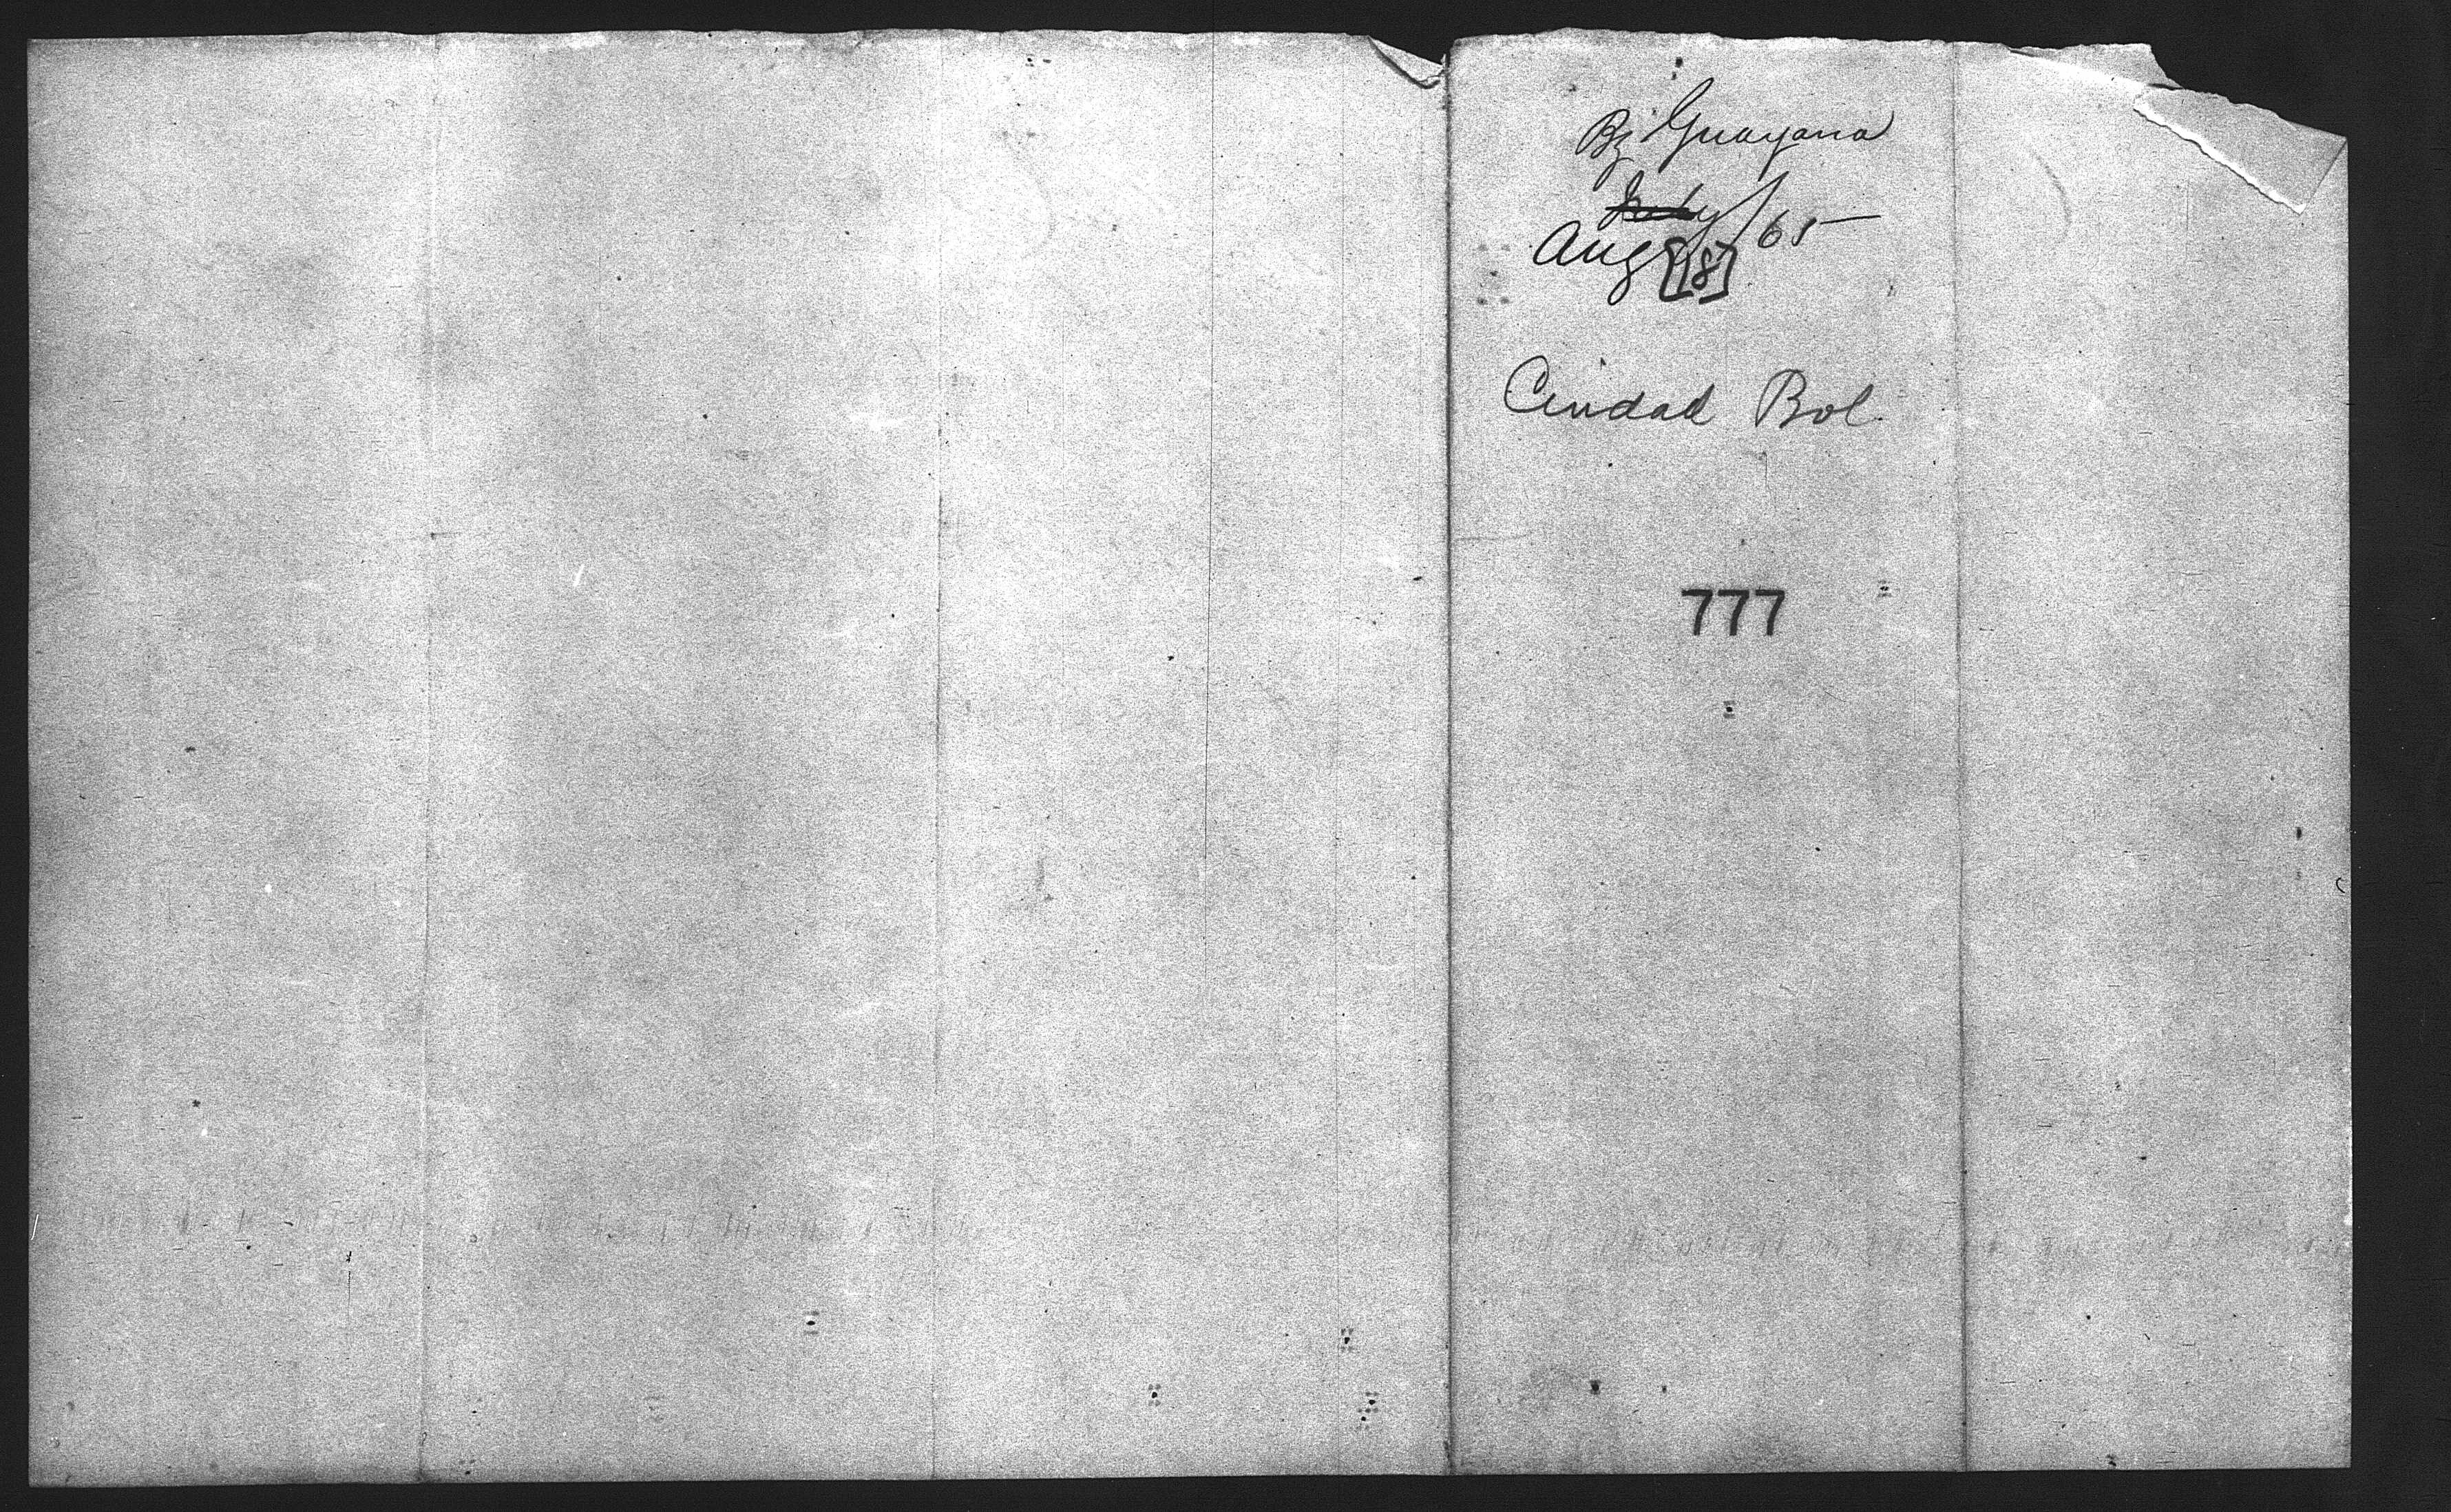 Bg Guayana
July /65
Aug [18]
Ciudad Bol.
777